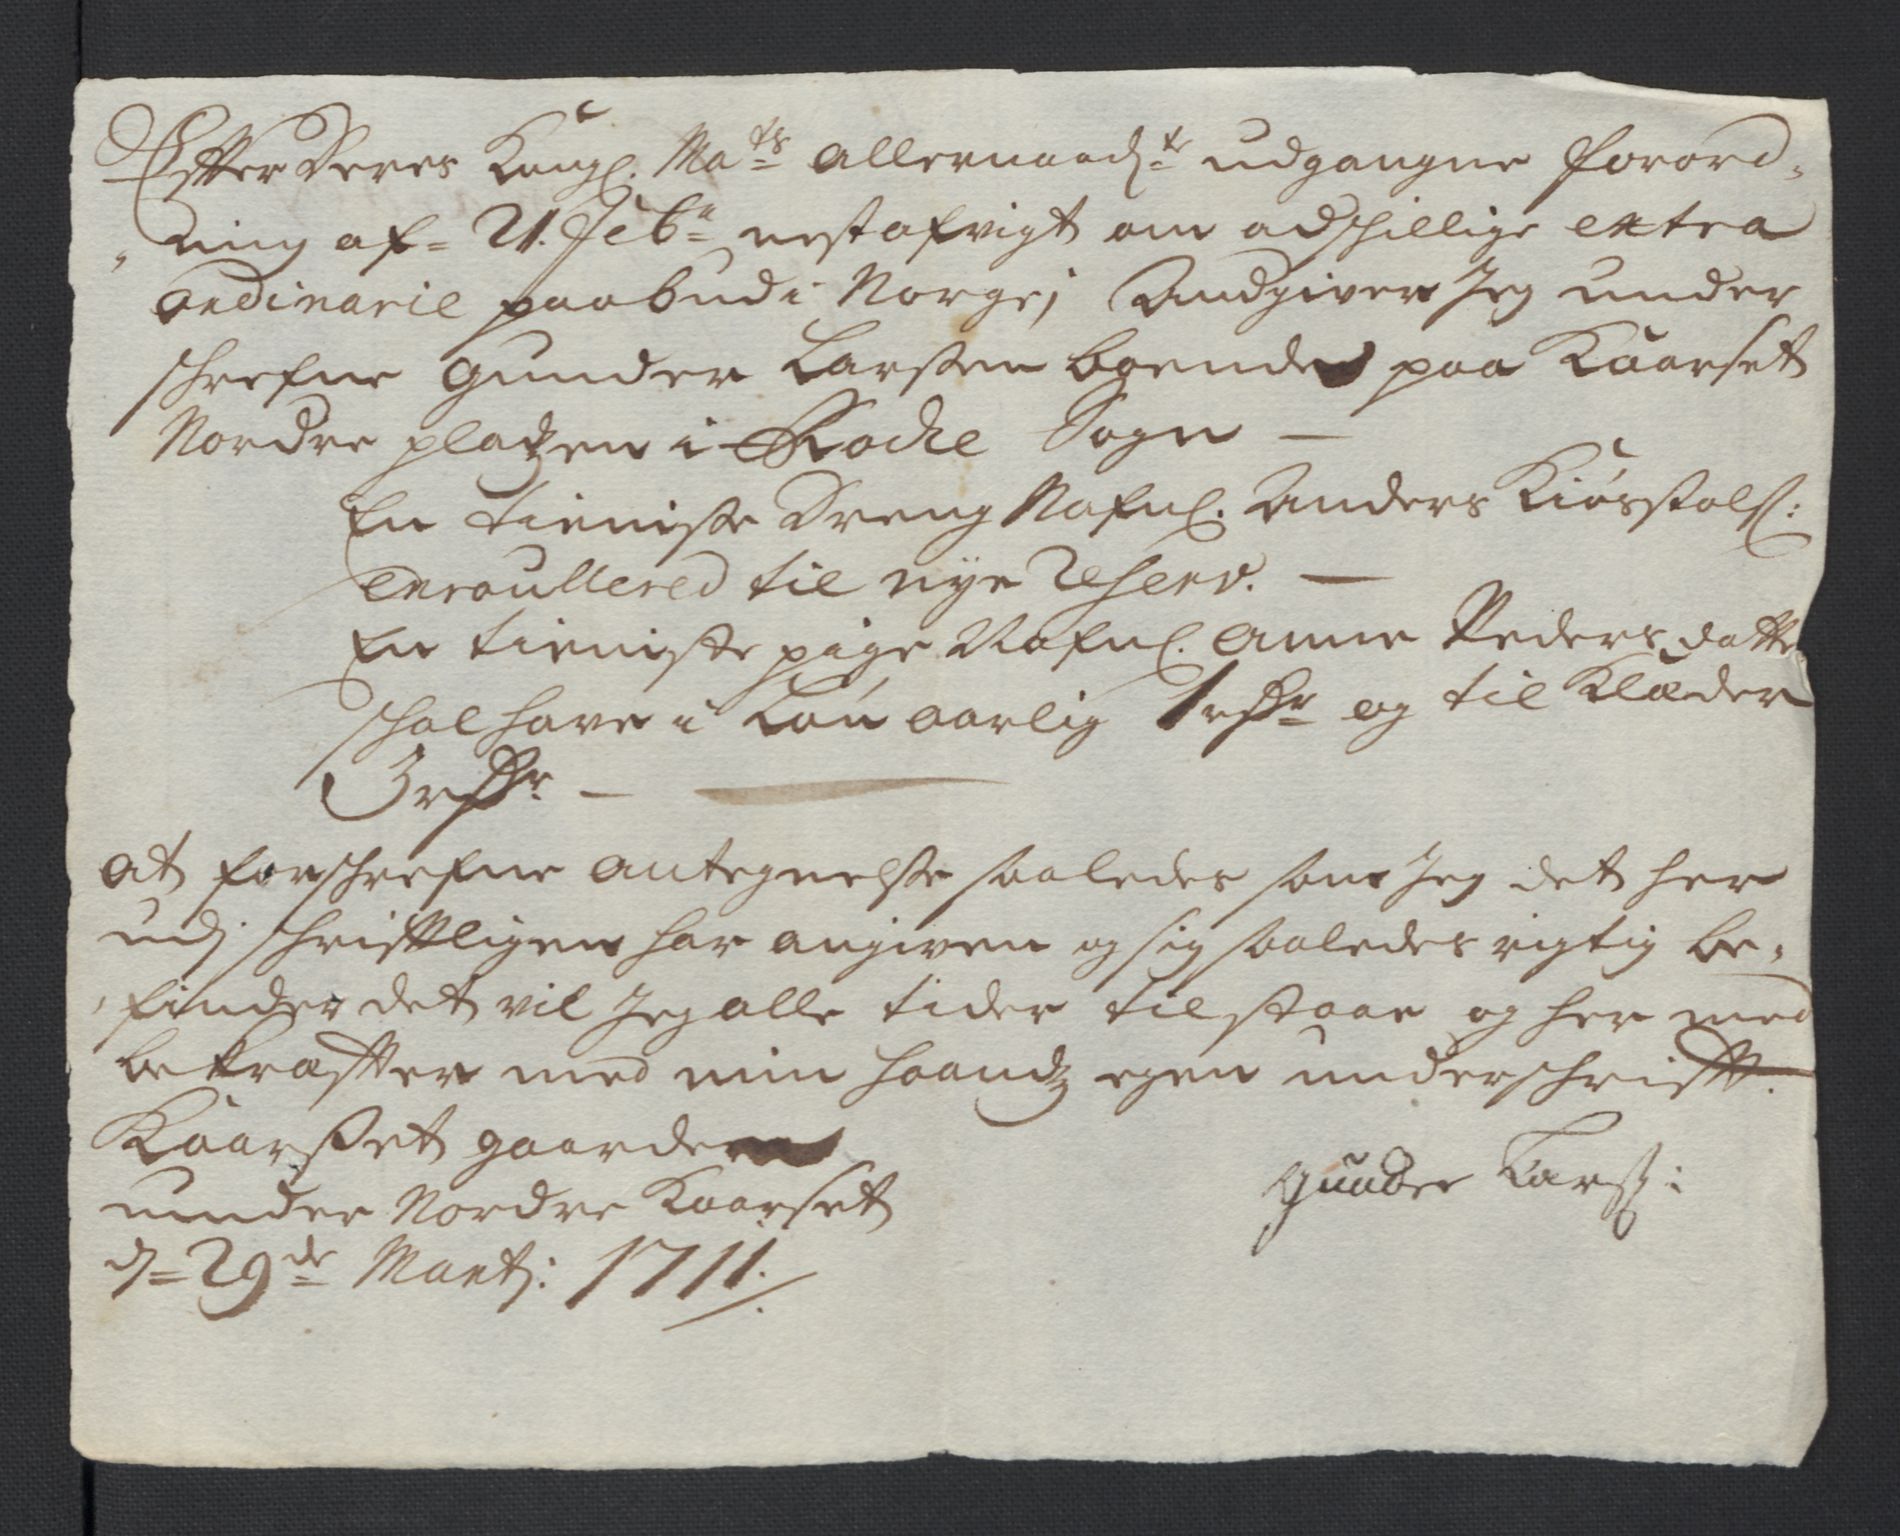 Effter Deres Kongl. Ma^ts allernaadt^e udgangne forord„
„ning af= 21. Feb^r nest afvigt om adschillige extra
ordinarie paabud i Norge, Andgiver Jeg under
schrefne Gunder Larssen boende paa Kaarset
Nordre platzen i Rocke Sogn —
En tieniste Dreng Nafnl. Anders Kiøstolss:
Enroullered til nye Reserv. —
En tieniste pige Nafnl. Anne Peders datte
schal have i Løn aarlig 1 rdr og til Klæder
3 rdr —
at forschrefne antegnelsse saaledes som Jeg det her
udj schrifftligen har angiven og sig saaledes rigtig be„
„finder det vil Jeg alle tider tilstaae og her med
bekræffter med min haandz egen underschrifft.
Kaarsset gaarden
under Nordre Kaarset
d= 29^de Martj: 1711.
Gunder Larss: